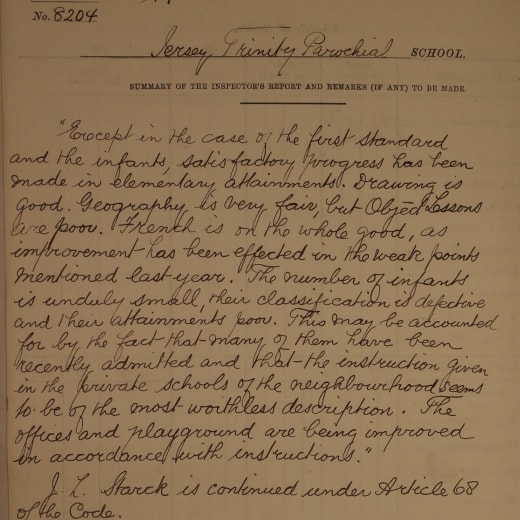 No. 8204
Jersey Trinity Parochial SCHOOL.
SUMMARY OF THE INSPECTOR'S REPORT AND REMARKS (IF ANY) TO BE MADE.
"Except in the case of the first standard
and the infants, satisfactory progress has been
made in elementary attainments. Drawing is
good. Geography is very fair, but Object Lessons
are poor. French is on the whole good, as
improvement has been effected in the weak points
mentioned last year. The number of infants
is unduly small, their classification is defective
and their attainments poor. This may be accounted
for by the fact that many of them have been
recently admitted and that the instruction given
in the private schools of the neighbourhood seems
to be of the most worthless description. The
offices and playground are being improved
in accordance with instructions."
J. L. Starck is continued under Article 68
of the Code.